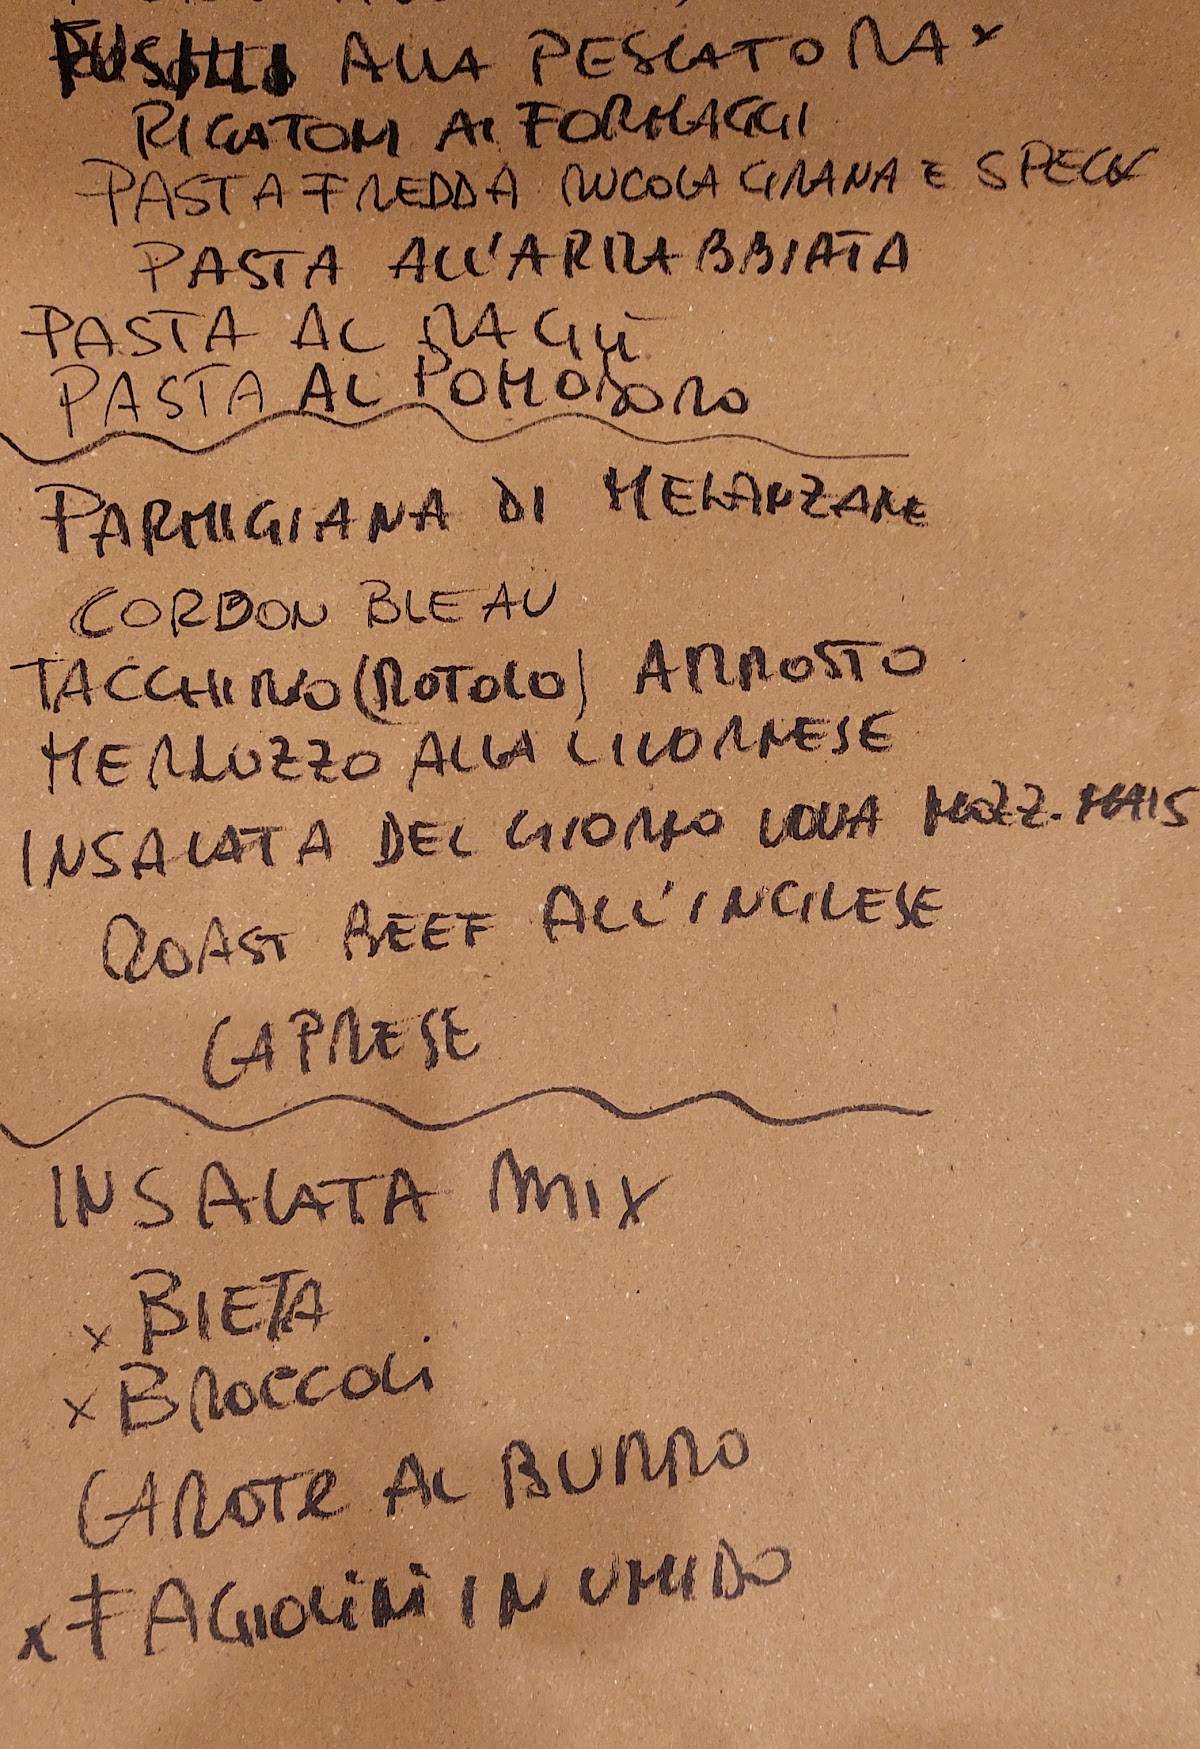 FUSILLI ALLA PESCATORA x
RIGATONI AI FORMAGGI
PASTA FREDDA RUCOLA GRANA E SPECK
PASTA ALL'ARRABBIATA
PASTA AL RAGÙ
PASTA AL POMODORO
PARMIGIANA DI MELANZANE
CORDON BLEAU
TACCHINO (ROTOLO) ARROSTO
MERLUZZO ALLA LIVORNESE
INSALATA DEL GIORNO UOVA MOZZ. MAIS
ROAST BEEF ALL'INGLESE
CAPRESE
INSALATA MIX
x BIETA
x BROCCOLI
CAROTE AL BURRO
x FAGIOLINI IN UMIDO